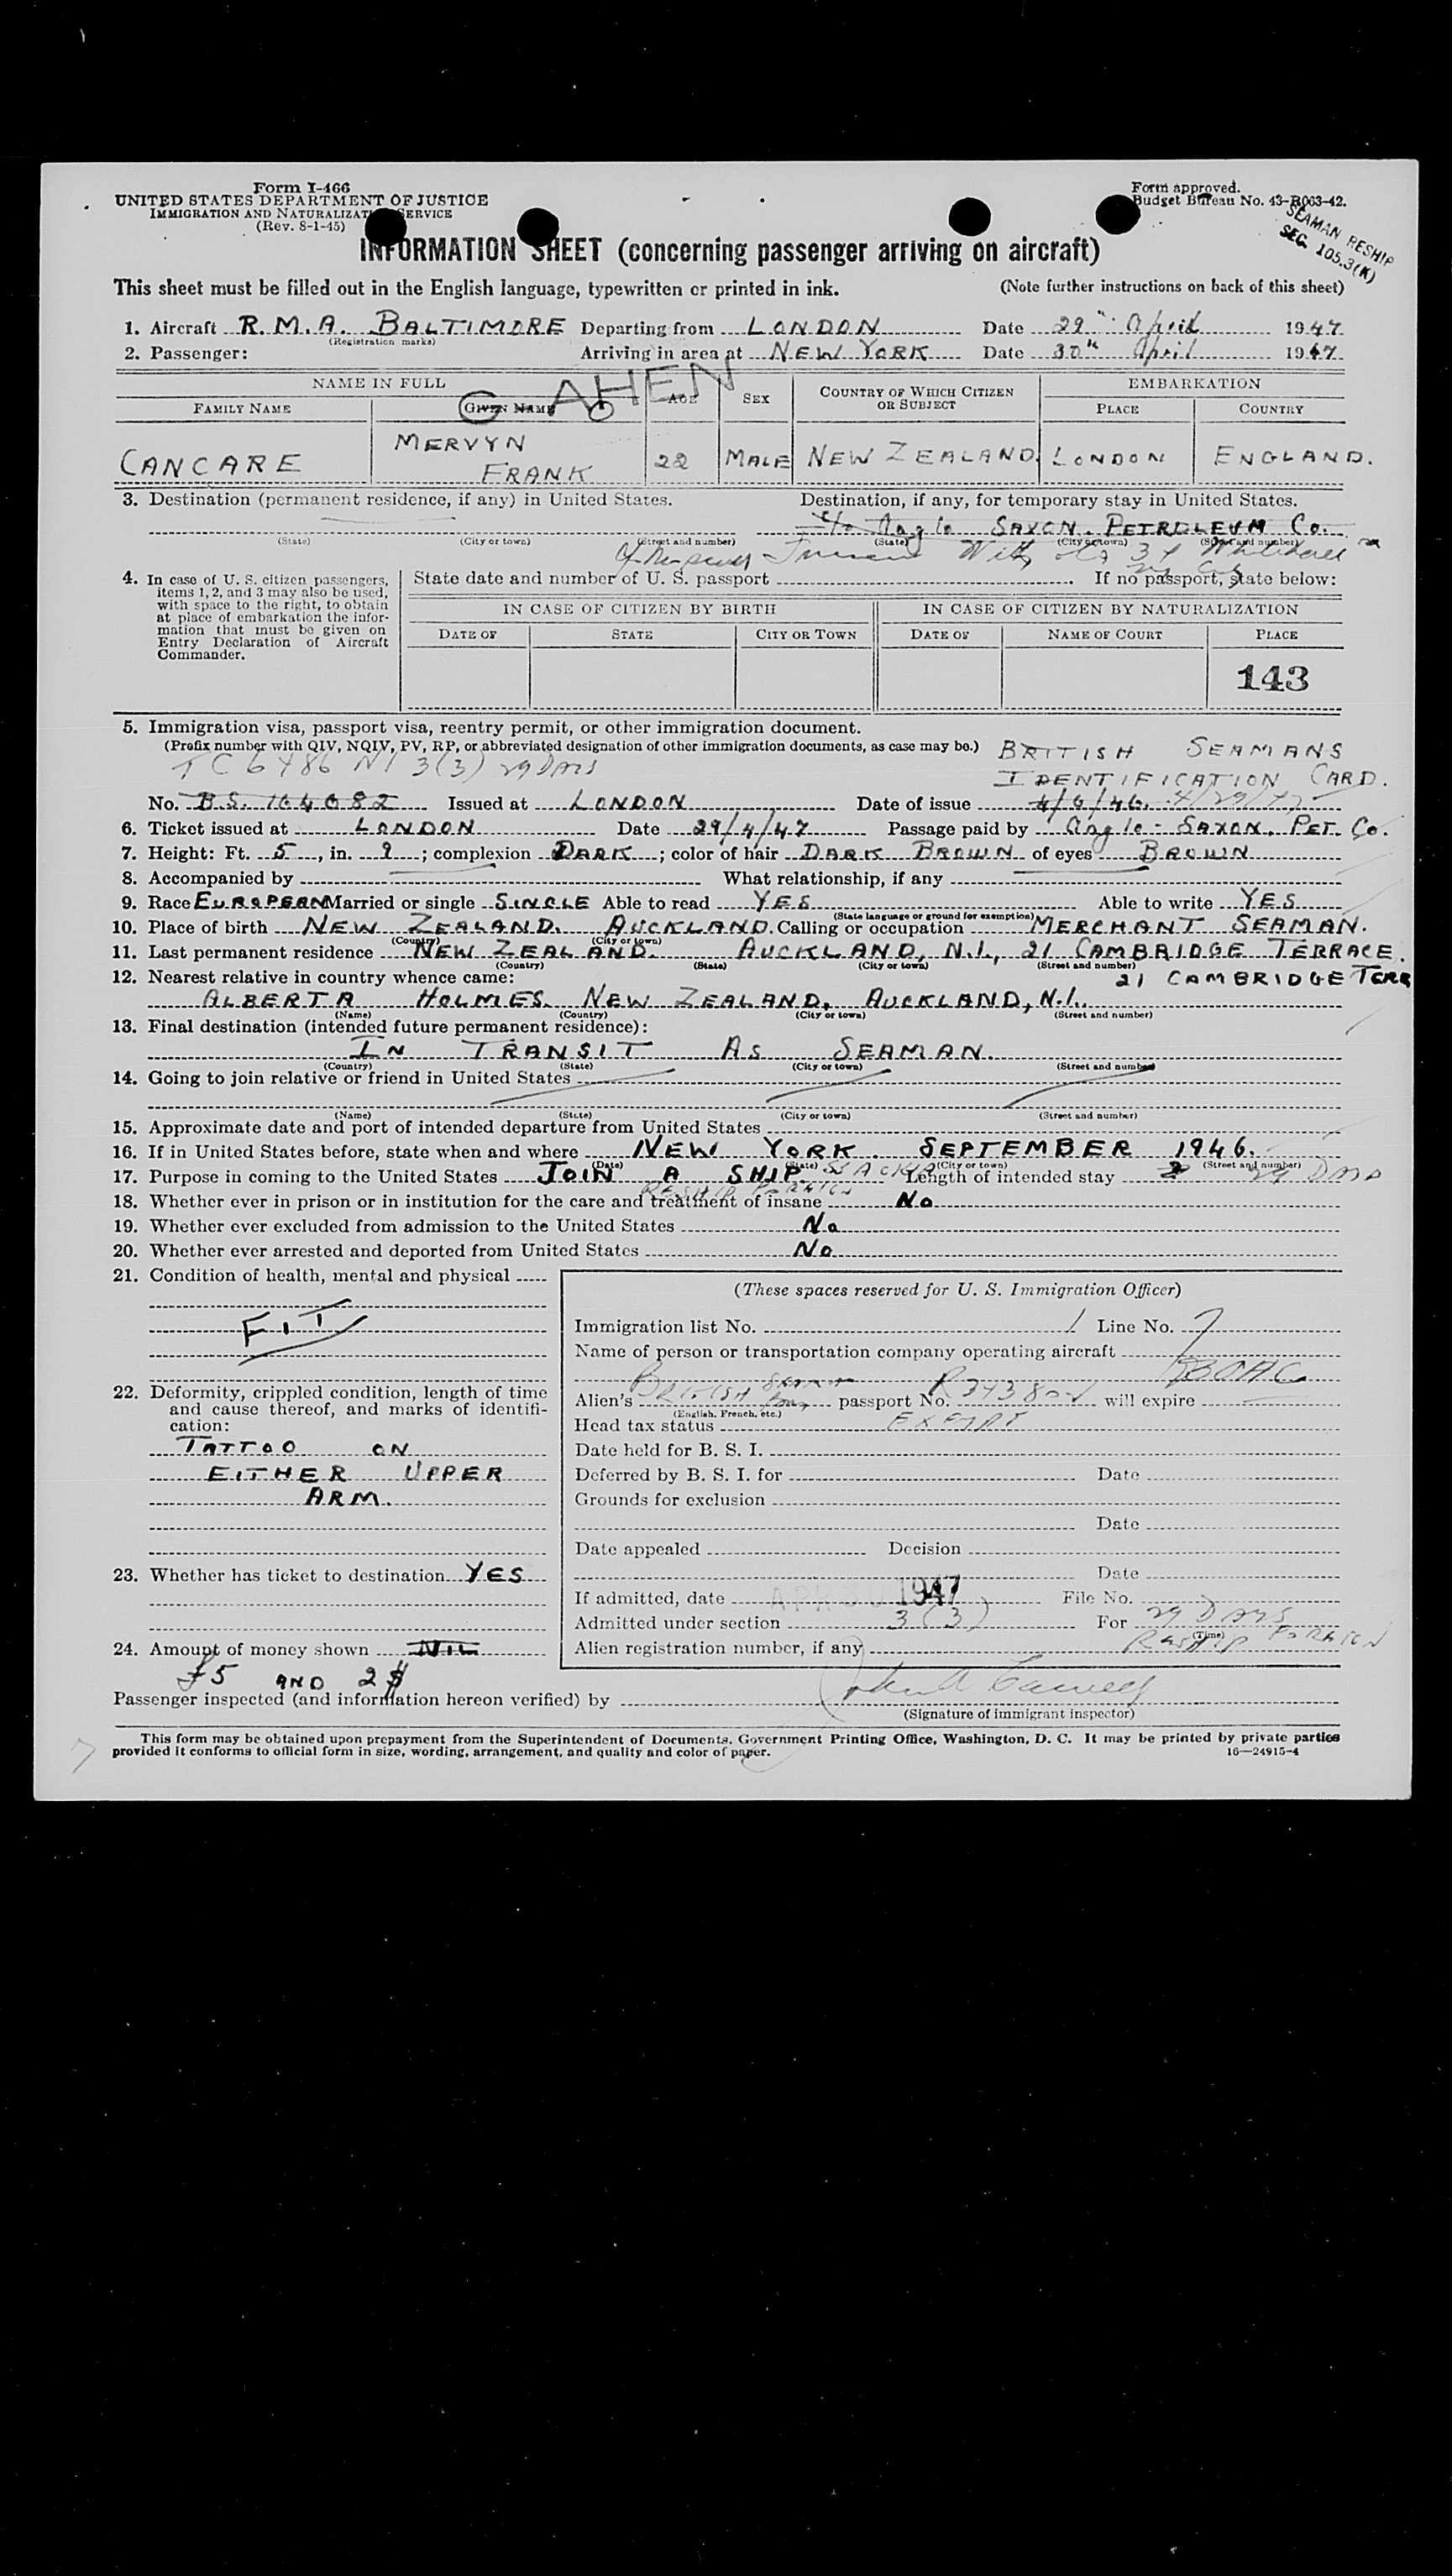 Form I-466
UNITED STATES DEPARTMENT OF JUSTICE
IMMIGRATION AND NATURALIZATION SERVICE
(Rev. 8-1-45)
Form approved.
Budget Bureau No. 43-R063-42.
SEAMAN RESHIP
SEC. 105.3(K)
INFORMATION SHEET (concerning passenger arriving on aircraft)
This sheet must be filled out in the English language, typewritten or printed in ink. (Note further instructions on back of this sheet)
1. Aircraft R.M.A. BALTIMORE Departing from LONDON Date 29th April 1947
(Registration marks)
2. Passenger: Arriving in area at NEW YORK Date 30th April 1947
NAME IN FULL AGE SEX COUNTRY OF WHICH CITIZEN OR SUBJECT EMBARKATION
FAMILY NAME GIVEN NAME PLACE COUNTRY
AHEN
CANCARE MERVYN FRANK 22 MALE NEW ZEALAND. LONDON ENGLAND.
3. Destination (permanent residence, if any) in United States. Destination, if any, for temporary stay in United States.
c/o Anglo SAXON. PETROLEUM Co.
(State) (City or town) (Street and number) (State) (City or town) (Street and number)
4. In case of U. S. citizen passengers, items 1, 2, and 3 may also be used, with space to the right, to obtain at place of embarkation the information that must be given on Entry Declaration of Aircraft Commander.
State date and number of U. S. passport If no passport, state below:
IN CASE OF CITIZEN BY BIRTH IN CASE OF CITIZEN BY NATURALIZATION
DATE OF STATE CITY OR TOWN DATE OF NAME OF COURT PLACE
143
5. Immigration visa, passport visa, reentry permit, or other immigration document.
(Prefix number with QIV, NQIV, PV, RP, or abbreviated designation of other immigration documents, as case may be.) BRITISH SEAMANS
3(3) 29 DAYS IDENTIFICATION CARD.
No. B.S. 164682 Issued at LONDON Date of issue 4/6/46. 4/29/47
6. Ticket issued at LONDON Date 29/4/47 Passage paid by Anglo-SAXON. PET. Co.
7. Height: Ft. 5, in. 9; complexion DARK; color of hair DARK BROWN of eyes BROWN
8. Accompanied by What relationship, if any
9. Race EUROPEAN Married or single SINGLE Able to read YES Able to write YES
(State language or ground for exemption)
10. Place of birth NEW ZEALAND. AUCKLAND. Calling or occupation MERCHANT SEAMAN.
(Country) (City or town)
11. Last permanent residence NEW ZEALAND. AUCKLAND, N.I., 21 CAMBRIDGE TERRACE.
(Country) (State) (City or town) (Street and number)
12. Nearest relative in country whence came: 21 CAMBRIDGE TERR
ALBERTA HOLMES. NEW ZEALAND, AUCKLAND, N.I.
(Name) (Country) (City or town) (Street and number)
13. Final destination (intended future permanent residence):
IN TRANSIT AS SEAMAN.
(Country) (State) (City or town) (Street and number)
14. Going to join relative or friend in United States
(Name) (State) (City or town) (Street and number)
15. Approximate date and port of intended departure from United States
16. If in United States before, state when and where NEW YORK. SEPTEMBER 1946.
(Date) (State) (City or town) (Street and number)
17. Purpose in coming to the United States JOIN A SHIP Length of intended stay 29 DAYS
RESHIP FOREIGN
18. Whether ever in prison or in institution for the care and treatment of insane No
19. Whether ever excluded from admission to the United States No
20. Whether ever arrested and deported from United States No
21. Condition of health, mental and physical
FIT
22. Deformity, crippled condition, length of time and cause thereof, and marks of identification:
TATTOO ON
EITHER UPPER
ARM.
23. Whether has ticket to destination YES
24. Amount of money shown NIL
£5 AND 2$
(These spaces reserved for U. S. Immigration Officer)
Immigration list No. 1 Line No. 7
Name of person or transportation company operating aircraft
BOAC
Alien's BRITISH passport No. will expire
(English, French, etc.)
Head tax status EXEMPT
Date held for B. S. I.
Deferred by B. S. I. for Date
Grounds for exclusion
Date
Date appealed Decision
Date
If admitted, date APR 30 1947 File No.
Admitted under section 3(3) For 29 DAYS
(Time)
Alien registration number, if any RESHIP FOREIGN
Passenger inspected (and information hereon verified) by
(Signature of immigrant inspector)
7
This form may be obtained upon prepayment from the Superintendent of Documents, Government Printing Office, Washington, D. C. It may be printed by private parties
provided it conforms to official form in size, wording, arrangement, and quality and color of paper. 16—24915-4